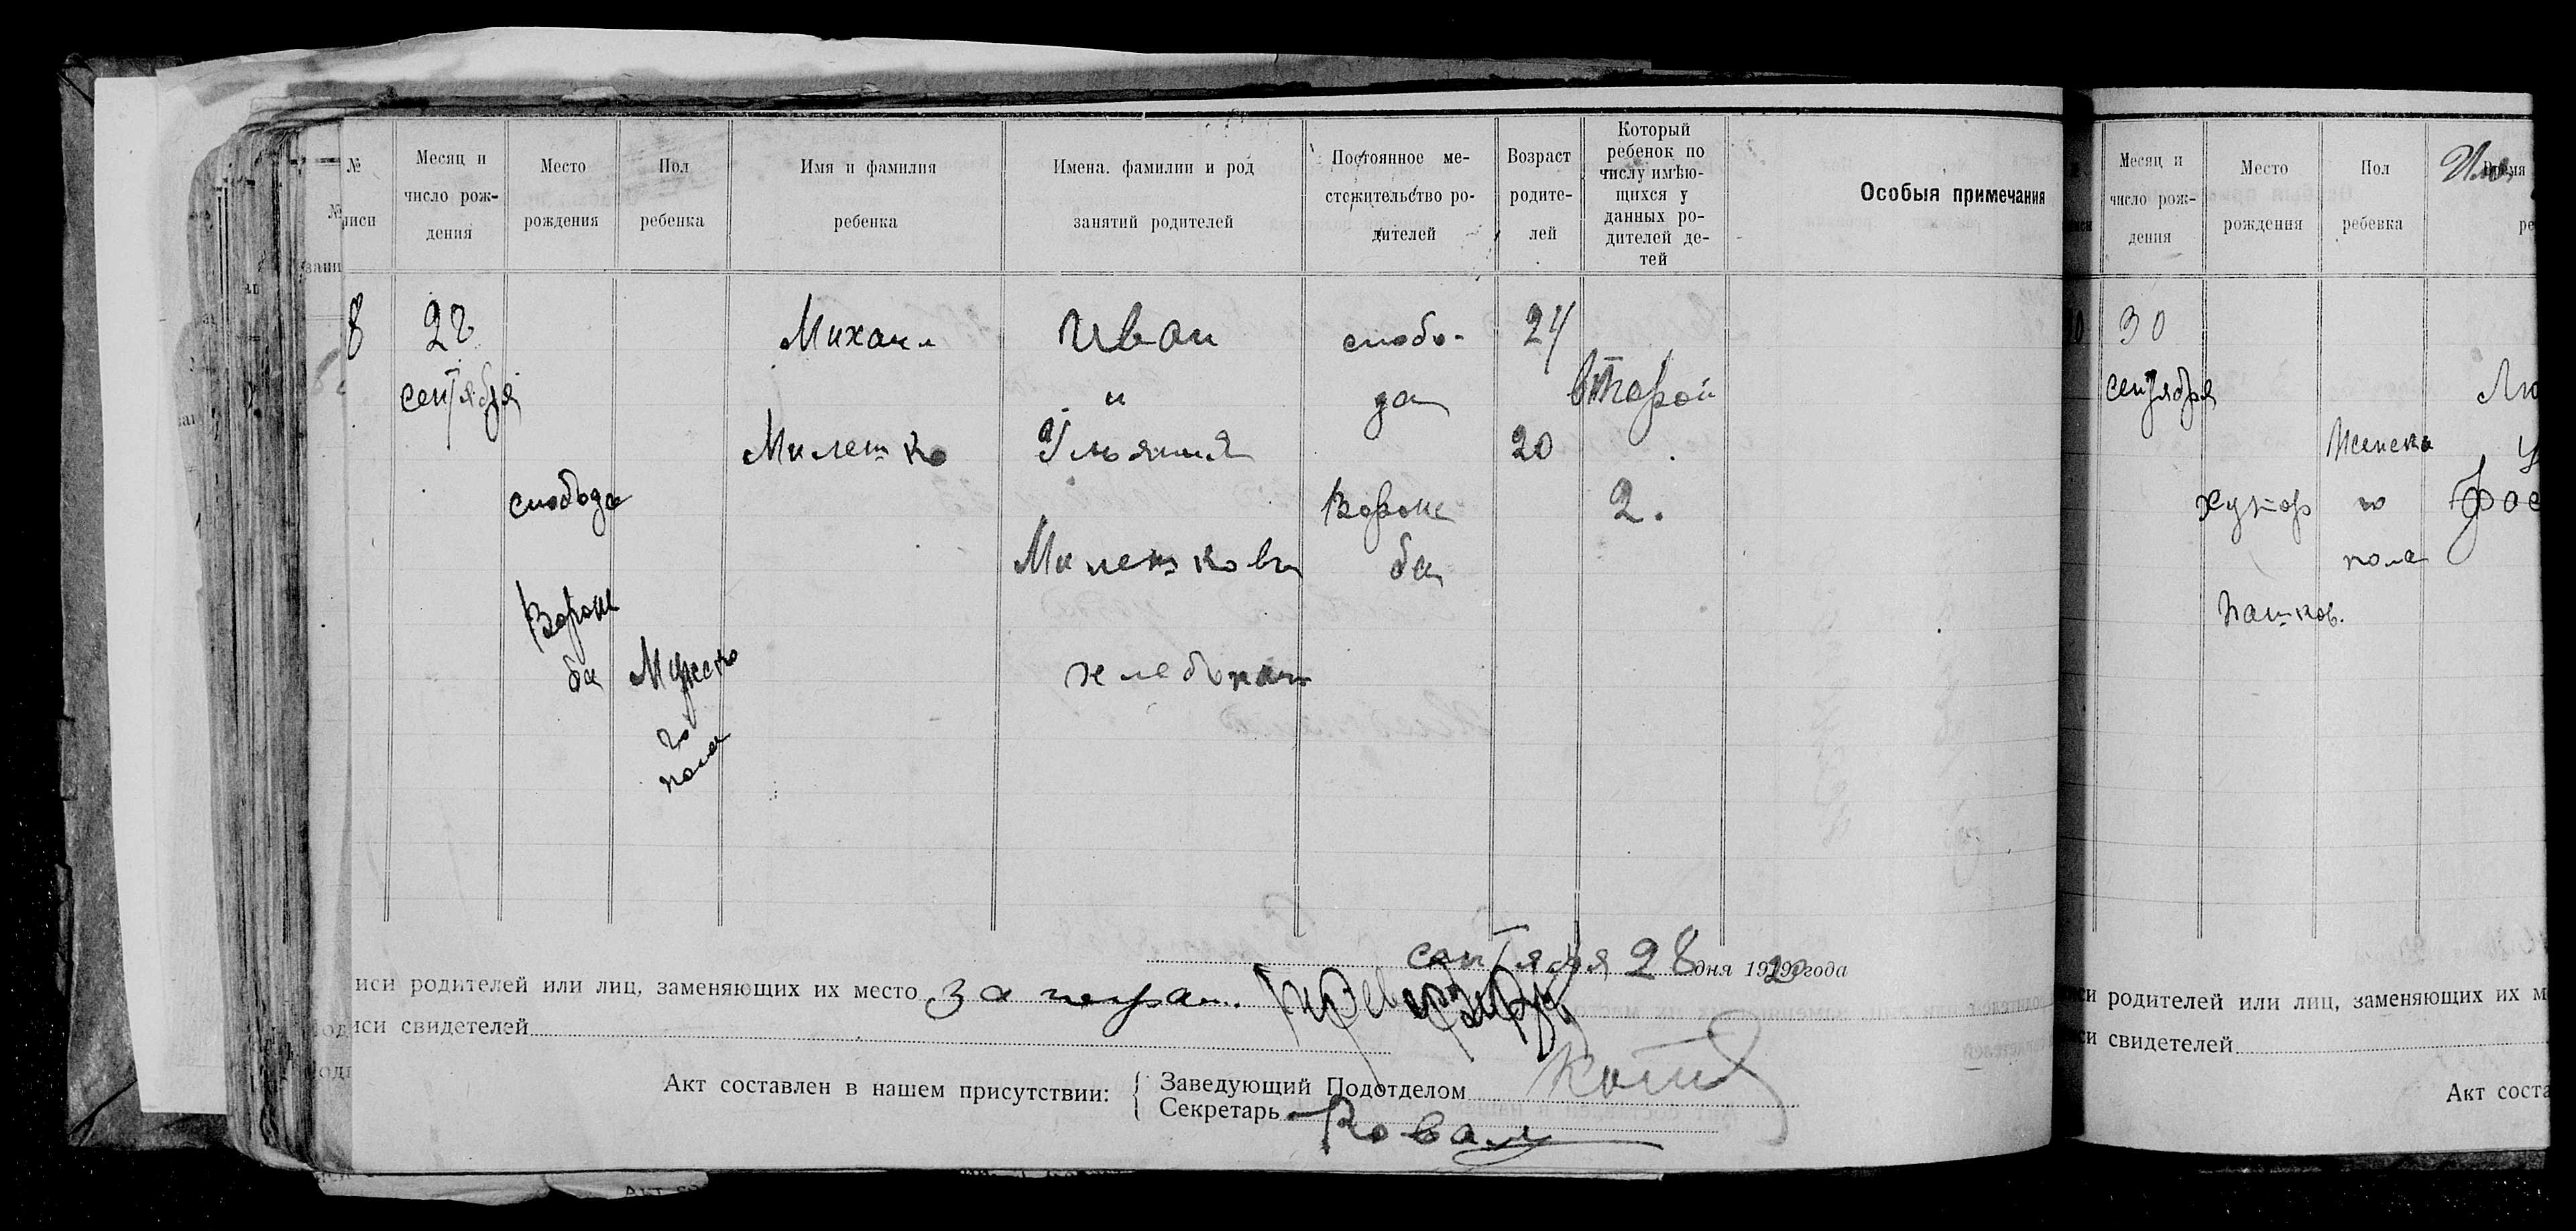 №
№
писи
запи
Месяц и
число рож-
дения
Место
рождения
Пол
ребенка
Имя и фамилия
ребенка
Имена. фамилии и род
занятий родителей
Постоянное ме-
стожительство ро-
дителей
Возраст
родите-
лей
Который
ребенок по
числу имѣю-
щихся у
данных ро-
дителей де-
тей
Особыя примечания
8
22
сентября
слобода
Ворож
ба
Мужско
го
пола
Михаил
Милешко
Иван
и
Ульяния
Милешковы
хлебопаш
слобо-
да
Ворож
ба
24
20
второй
2.
сентября 28 дня 1920 года
иси родителей или лиц, заменяющих их место за неграм.
иси свидетелей
Акт составлен в нашем присутствии:
Заведующий Подотделом
Секретарь Ковал
Месяц и
число рож-
дения
Место
рождения
Пол
ребенка
Имя
ре
30
сентября
хутор
Пашков.
Женско
го
пола
иси родителей или лиц, заменяющих их м
си свидетелей
Акт соста